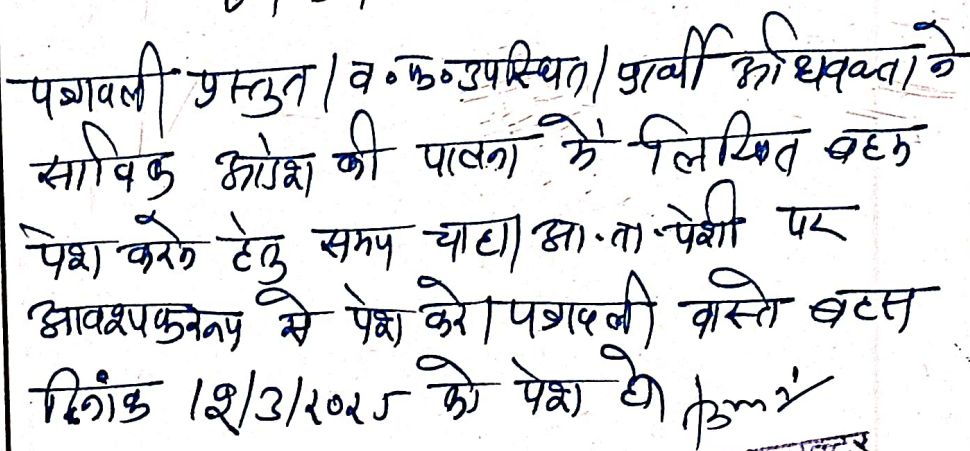 पत्रावली प्रस्तुत। व०फ०उपस्थित। प्रार्थी अधिवक्ता ने
साविक आदेश की पालना में लिखित बहस
पेश करने हेतु समय चाहा। आ.ता.पेशी पर
आवश्यकरूप से पेश करे। पत्रावली वास्ते बहस
दिनांक 12/3/2025 को पेश हो।